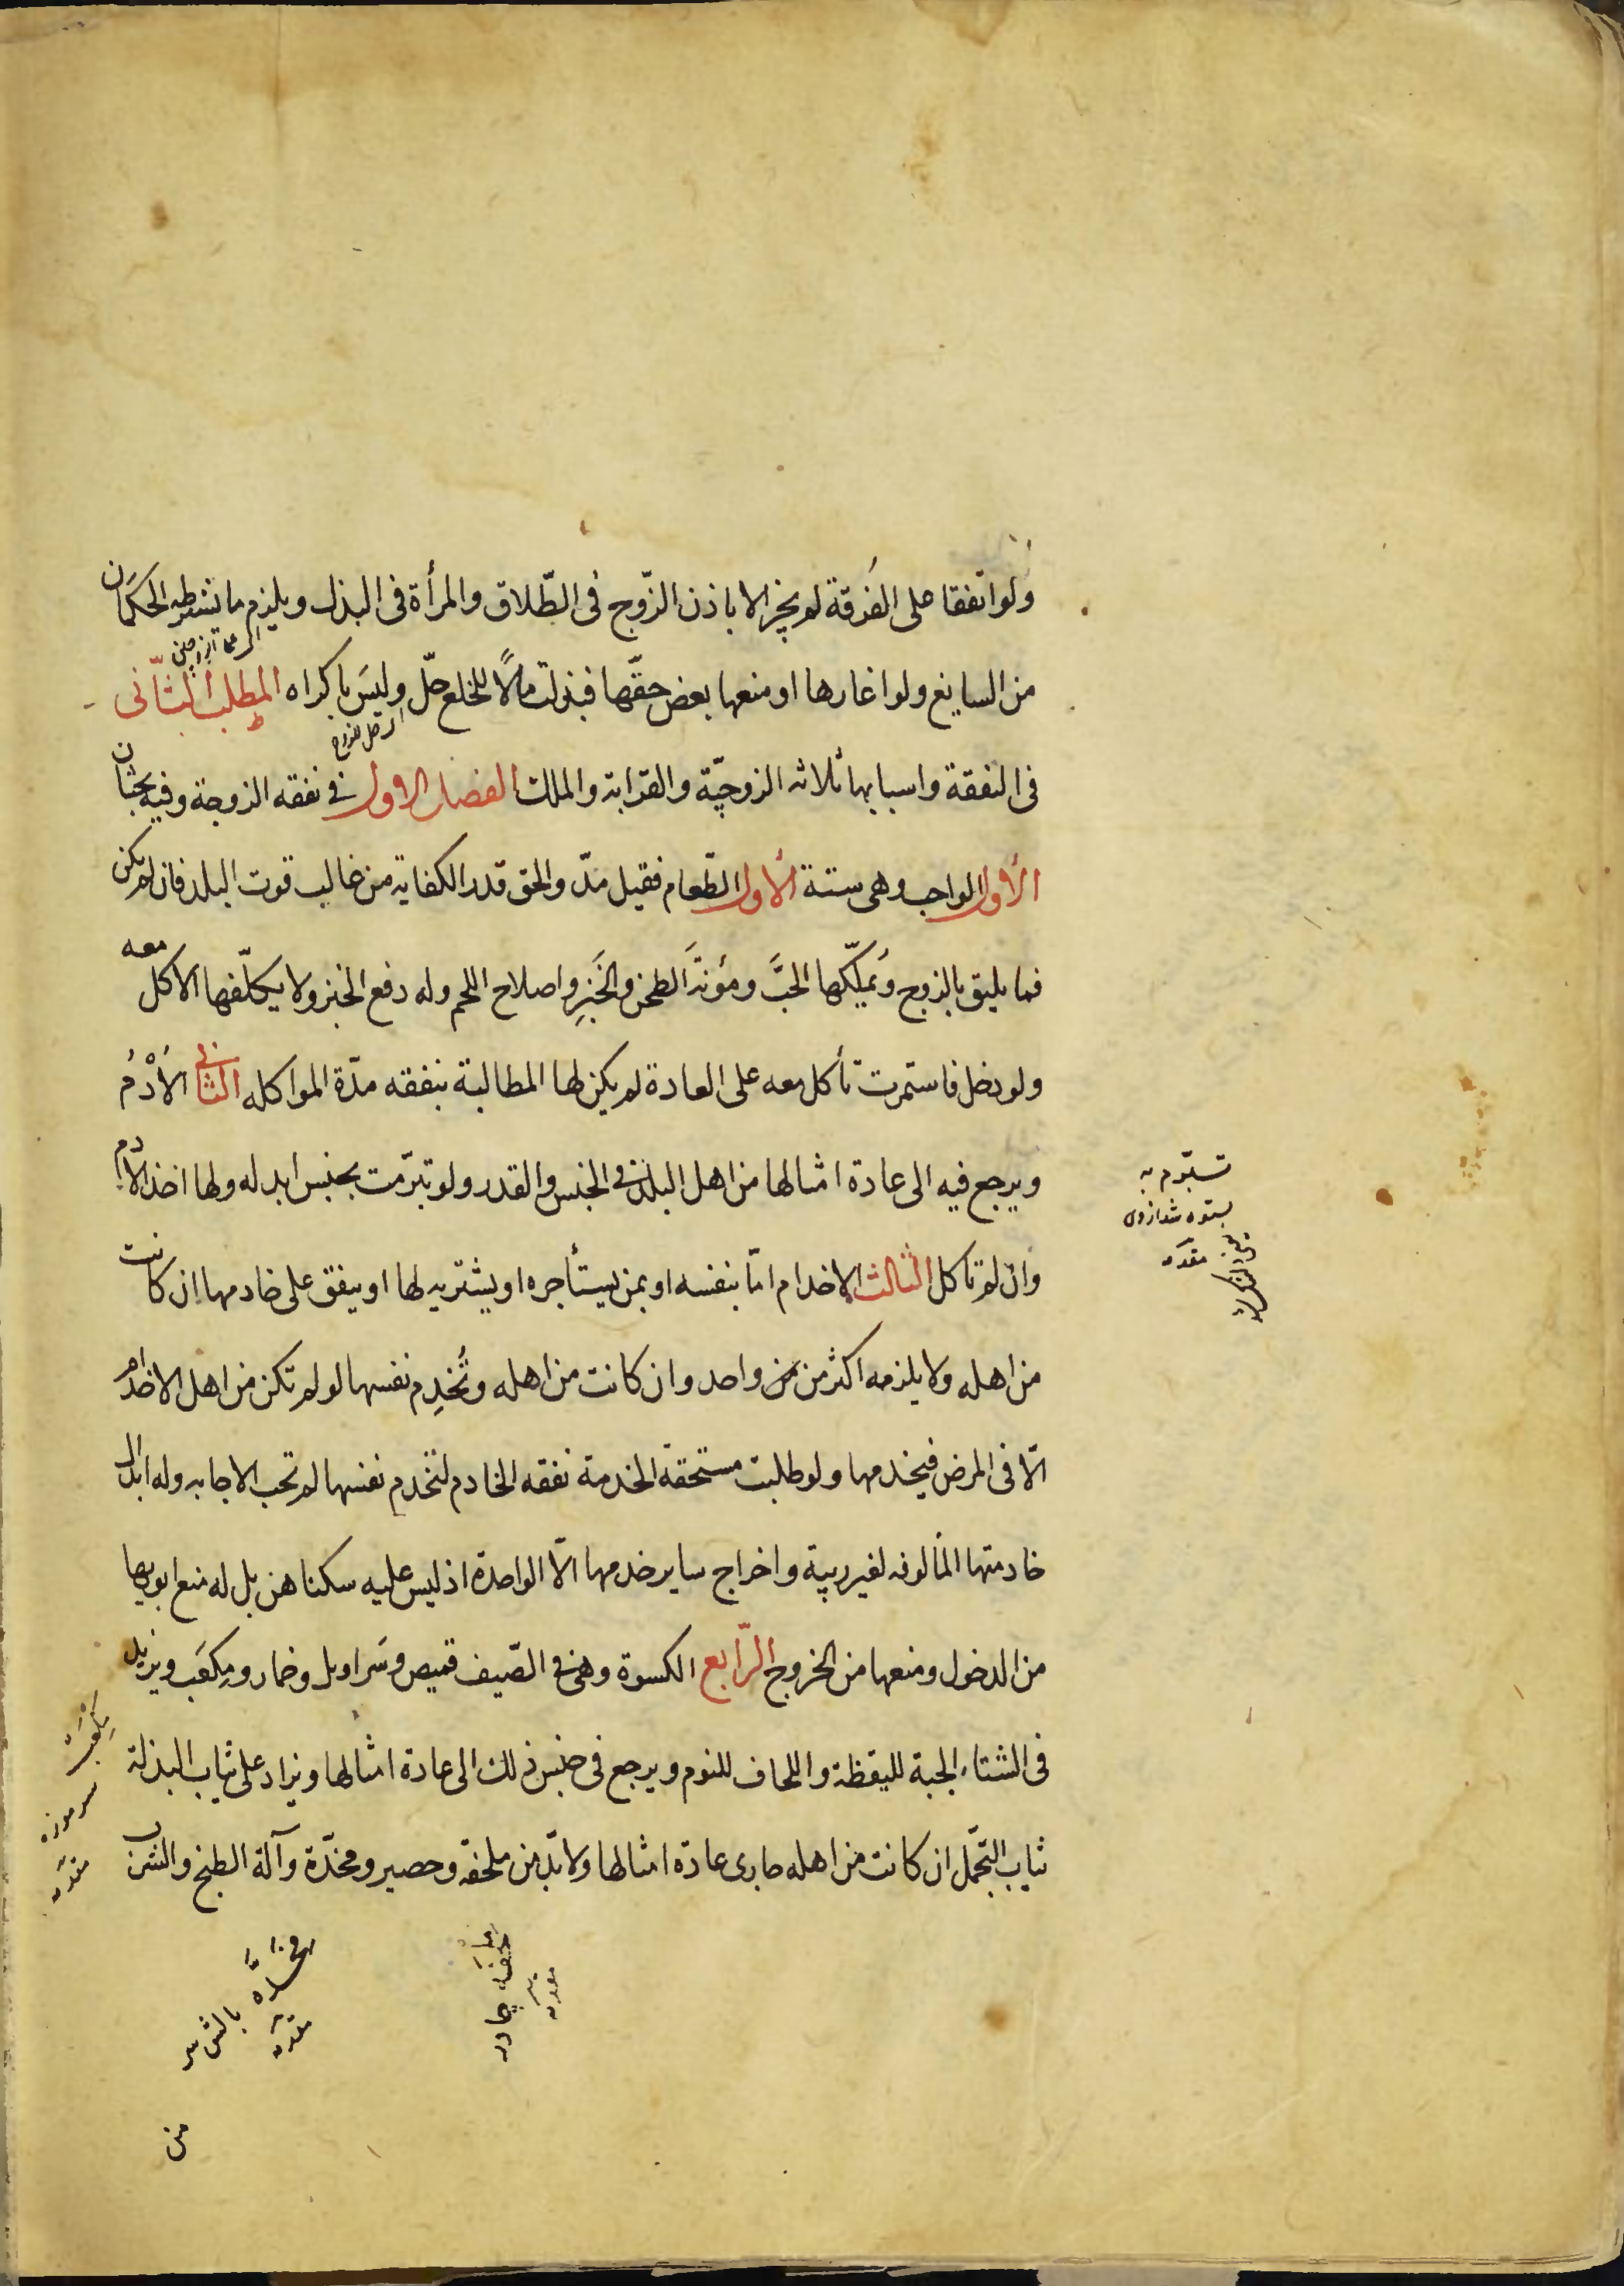 ولو اتفقا على الفُرقة لم يجز الا باذن الزّوج فى الطّلاق والمرأة فى البذل ويلزم ما يشترطه الحكمان
من السايغ ولو اغارها او منعها بعض حقّها فبذلت مالًا للخلع حلّ وليسَ باكراه المطلب الثّانى
فى النفقة واسبابها ثلاثه الزوجيّة والقرابة والملك الفصل الاول فى نفقه الزوجة وفيه بحثان
الأول الواجب وهى ستة الأول الطّعام فقيل مدّ والحق قدر الكفاية من غالب قوت البلد فان لم يكن
فما يليق بالزوج وَيملّكها الحبَّ ومؤنةَ الطحن والخَبزِ واصلاح اللحم وله دفع الخبز ولا يكلّفها الاكل معه
ولو دخل فاستمرت تأكل معه على العادة لم يكن لها المطالبة بنفقه مدّة المواكله الثانى الأُدْمُ
ويرجع فيه الى عادة امثالها من اهل البلد فى الجنس والقدر ولو تبرّمت بجنس ابدله ولها اخذ الأدم
وان لم تاكل الثالث الاخدام امّا بنفسه او بمن يستأجره او يشتريه لها او ينفق على خادمها ان كانت
من اهله ولا يلزمه اكثر من من واحد وان كانت من اهله وتُخدِم نفسها لو لم تكن من اهل الاخدام
الّا فى المرض فيخدمها ولو طلبت مستحقة الخدمة نفقه الخادم لتخدم نفسها لم تجب الاجابه وله ابدال
خادمتها المألوفه لغير ريبة واخراج ساير خدمها الّا الواحدة اذ ليس عليه سكناهن بل له منع ابويها
من الدخول ومنعها من الخروج الرّابع الكسوة وهى فى الصّيف قميص وسَراويل وخمار ومِكعَب ويزيد
فى الشتاء الجبة لليقظة واللحاف للنوم ويرجع فى جنس ذلك الى عادة امثالها ويزاد على ثياب البذلة
ثياب التجمّل ان كانت من اهله جارى عادة امثالها ولا بدّ من ملحفه وحصير ومخدّة وآلة الطبخ والشرب
تبرّم به
بستوه شد ازوى
مقدمه
مِكْعَب
سرموزه
مقدمه
ملحفه چادر
مقدمه
مخدّه بالش سر
مقدمه
من